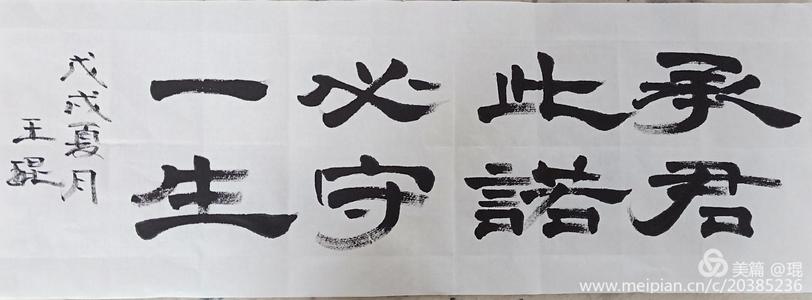 承君
此諾
必守
一生
戊戌夏月
王琨
美篇 @琨
www.meipian.cn/c/20385236